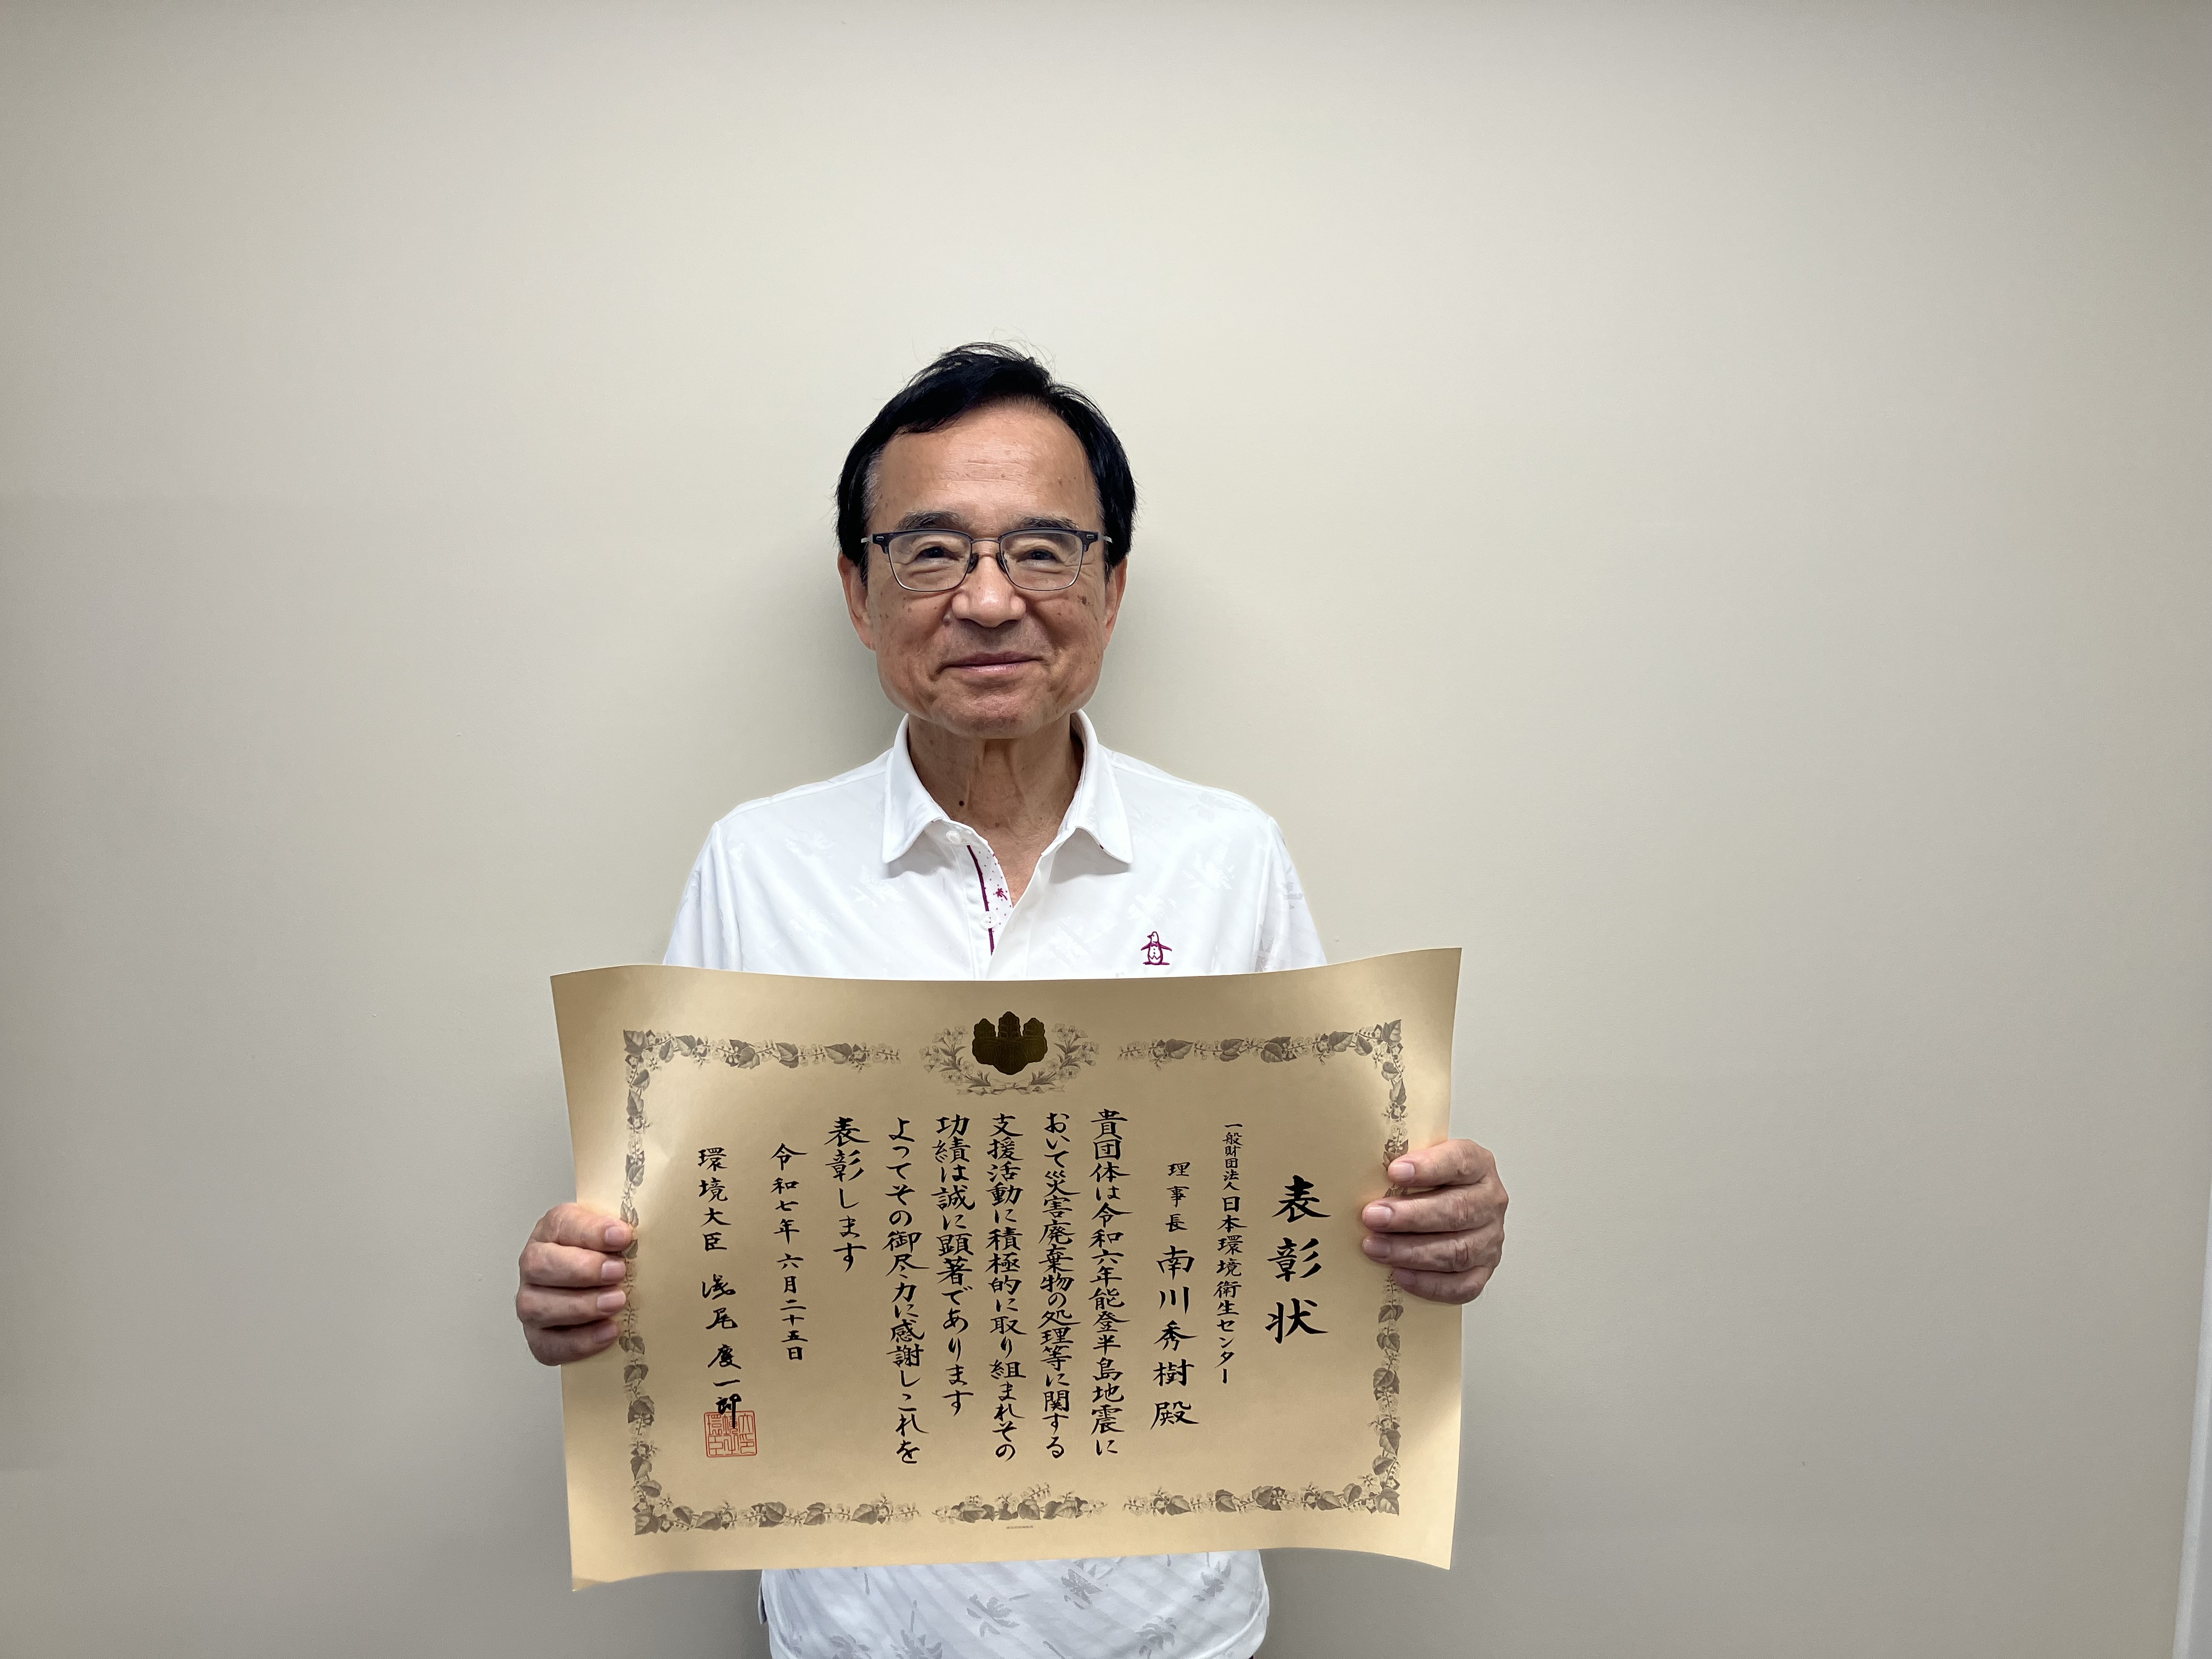 表彰状
一般財団法人日本環境衛生センター
理事長 南川秀樹殿
貴団体は令和六年能登半島地震に
おいて災害廃棄物の処理等に関する
支援活動に積極的に取り組まれその
功績は誠に顕著であります
よってその御尽力に感謝しこれを
表彰します
令和七年六月二十五日
環境大臣 浅尾慶一郎